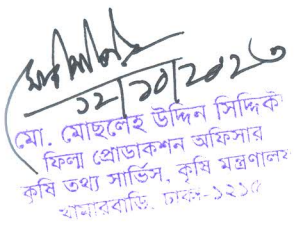 ১২/১০/২০২৩
মো. মোছলেহ উদ্দিন সিদ্দিক
ফিল্ম প্রোডাকশন অফিসার
কৃষি তথ্য সার্ভিস, কৃষি মন্ত্রণালয়
খামারবাড়ি, ঢাকা-১২১৫